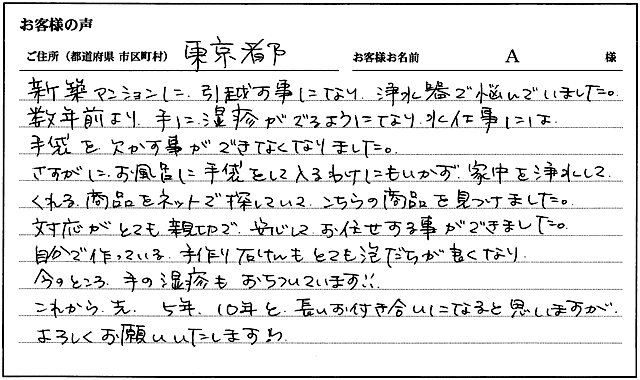 お客様の声
ご住所（都道府県 市区町村） 東京都 お客様お名前 A 様
新築マンションに、引越す事になり、浄水器で悩んでいました。
数年前より、手に湿疹がでるようになり、水仕事には
手袋を欠かす事ができなくなりました。
さすがに、お風呂に手袋をして入るわけにもいかず、家中を浄水して
くれる商品をネットで探していて、こちらの商品を見つけました。
対応がとても親切で、安心してお任せする事ができました。
自分で作っている、手作り石けんもとても泡だちが良くなり、
今のところ、手の湿疹もおちついています!!
これから、先、5年、10年と、長いお付き合いになると思いますが、
よろしくお願いいたします!!